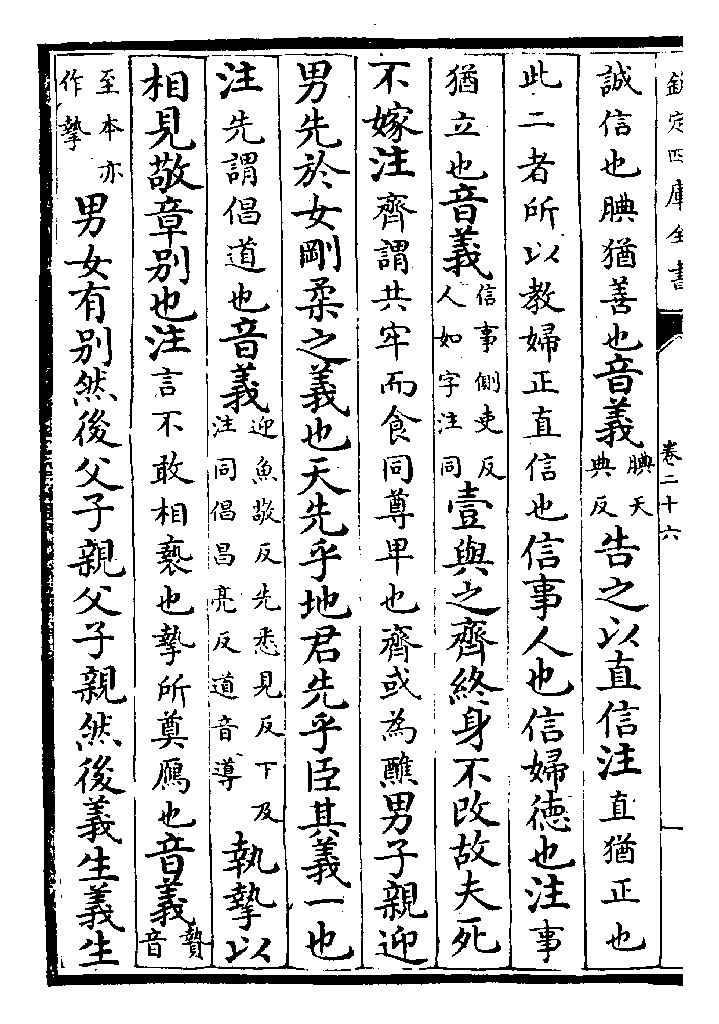 欽定四庫全書
卷二十六
誠信也腆猶善也音義腆天典反告之以直信注直猶正也
此二者所以教婦正直信也信事人也信婦德也注事
猶立也音義信事側吏反人如字注同壹與之齊終身不改故夫死
不嫁注齊謂共牢而食同尊卑也齊或為醮男子親迎
男先於女剛柔之義也天先乎地君先乎臣其義一也
注先謂倡道也音義迎魚敬反先悉見反下及注同倡昌亮反道音導執摯以
相見敬章別也注言不敢相褻也摯所奠鴈也音義贄音
至本亦作摯男女有別然後父子親父子親然後義生義生